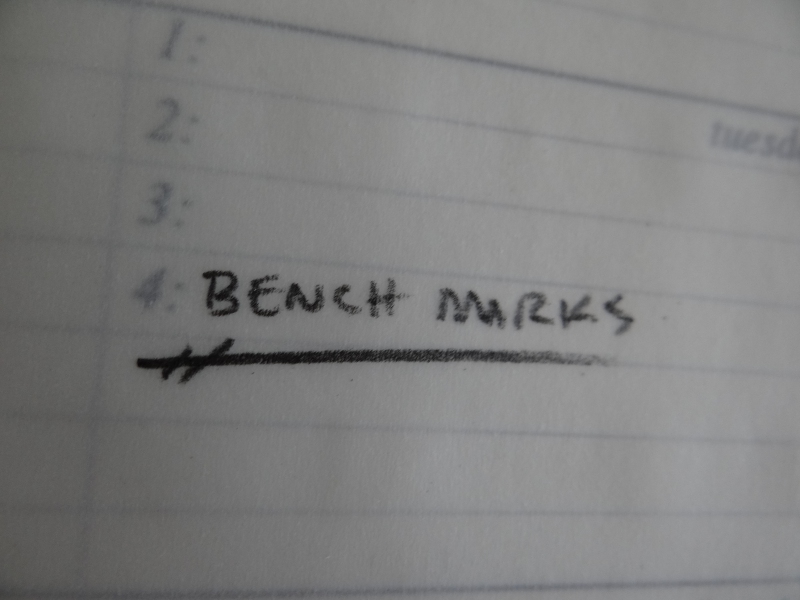 1:
2:
tuesda
3:
4: BENCH MARKS